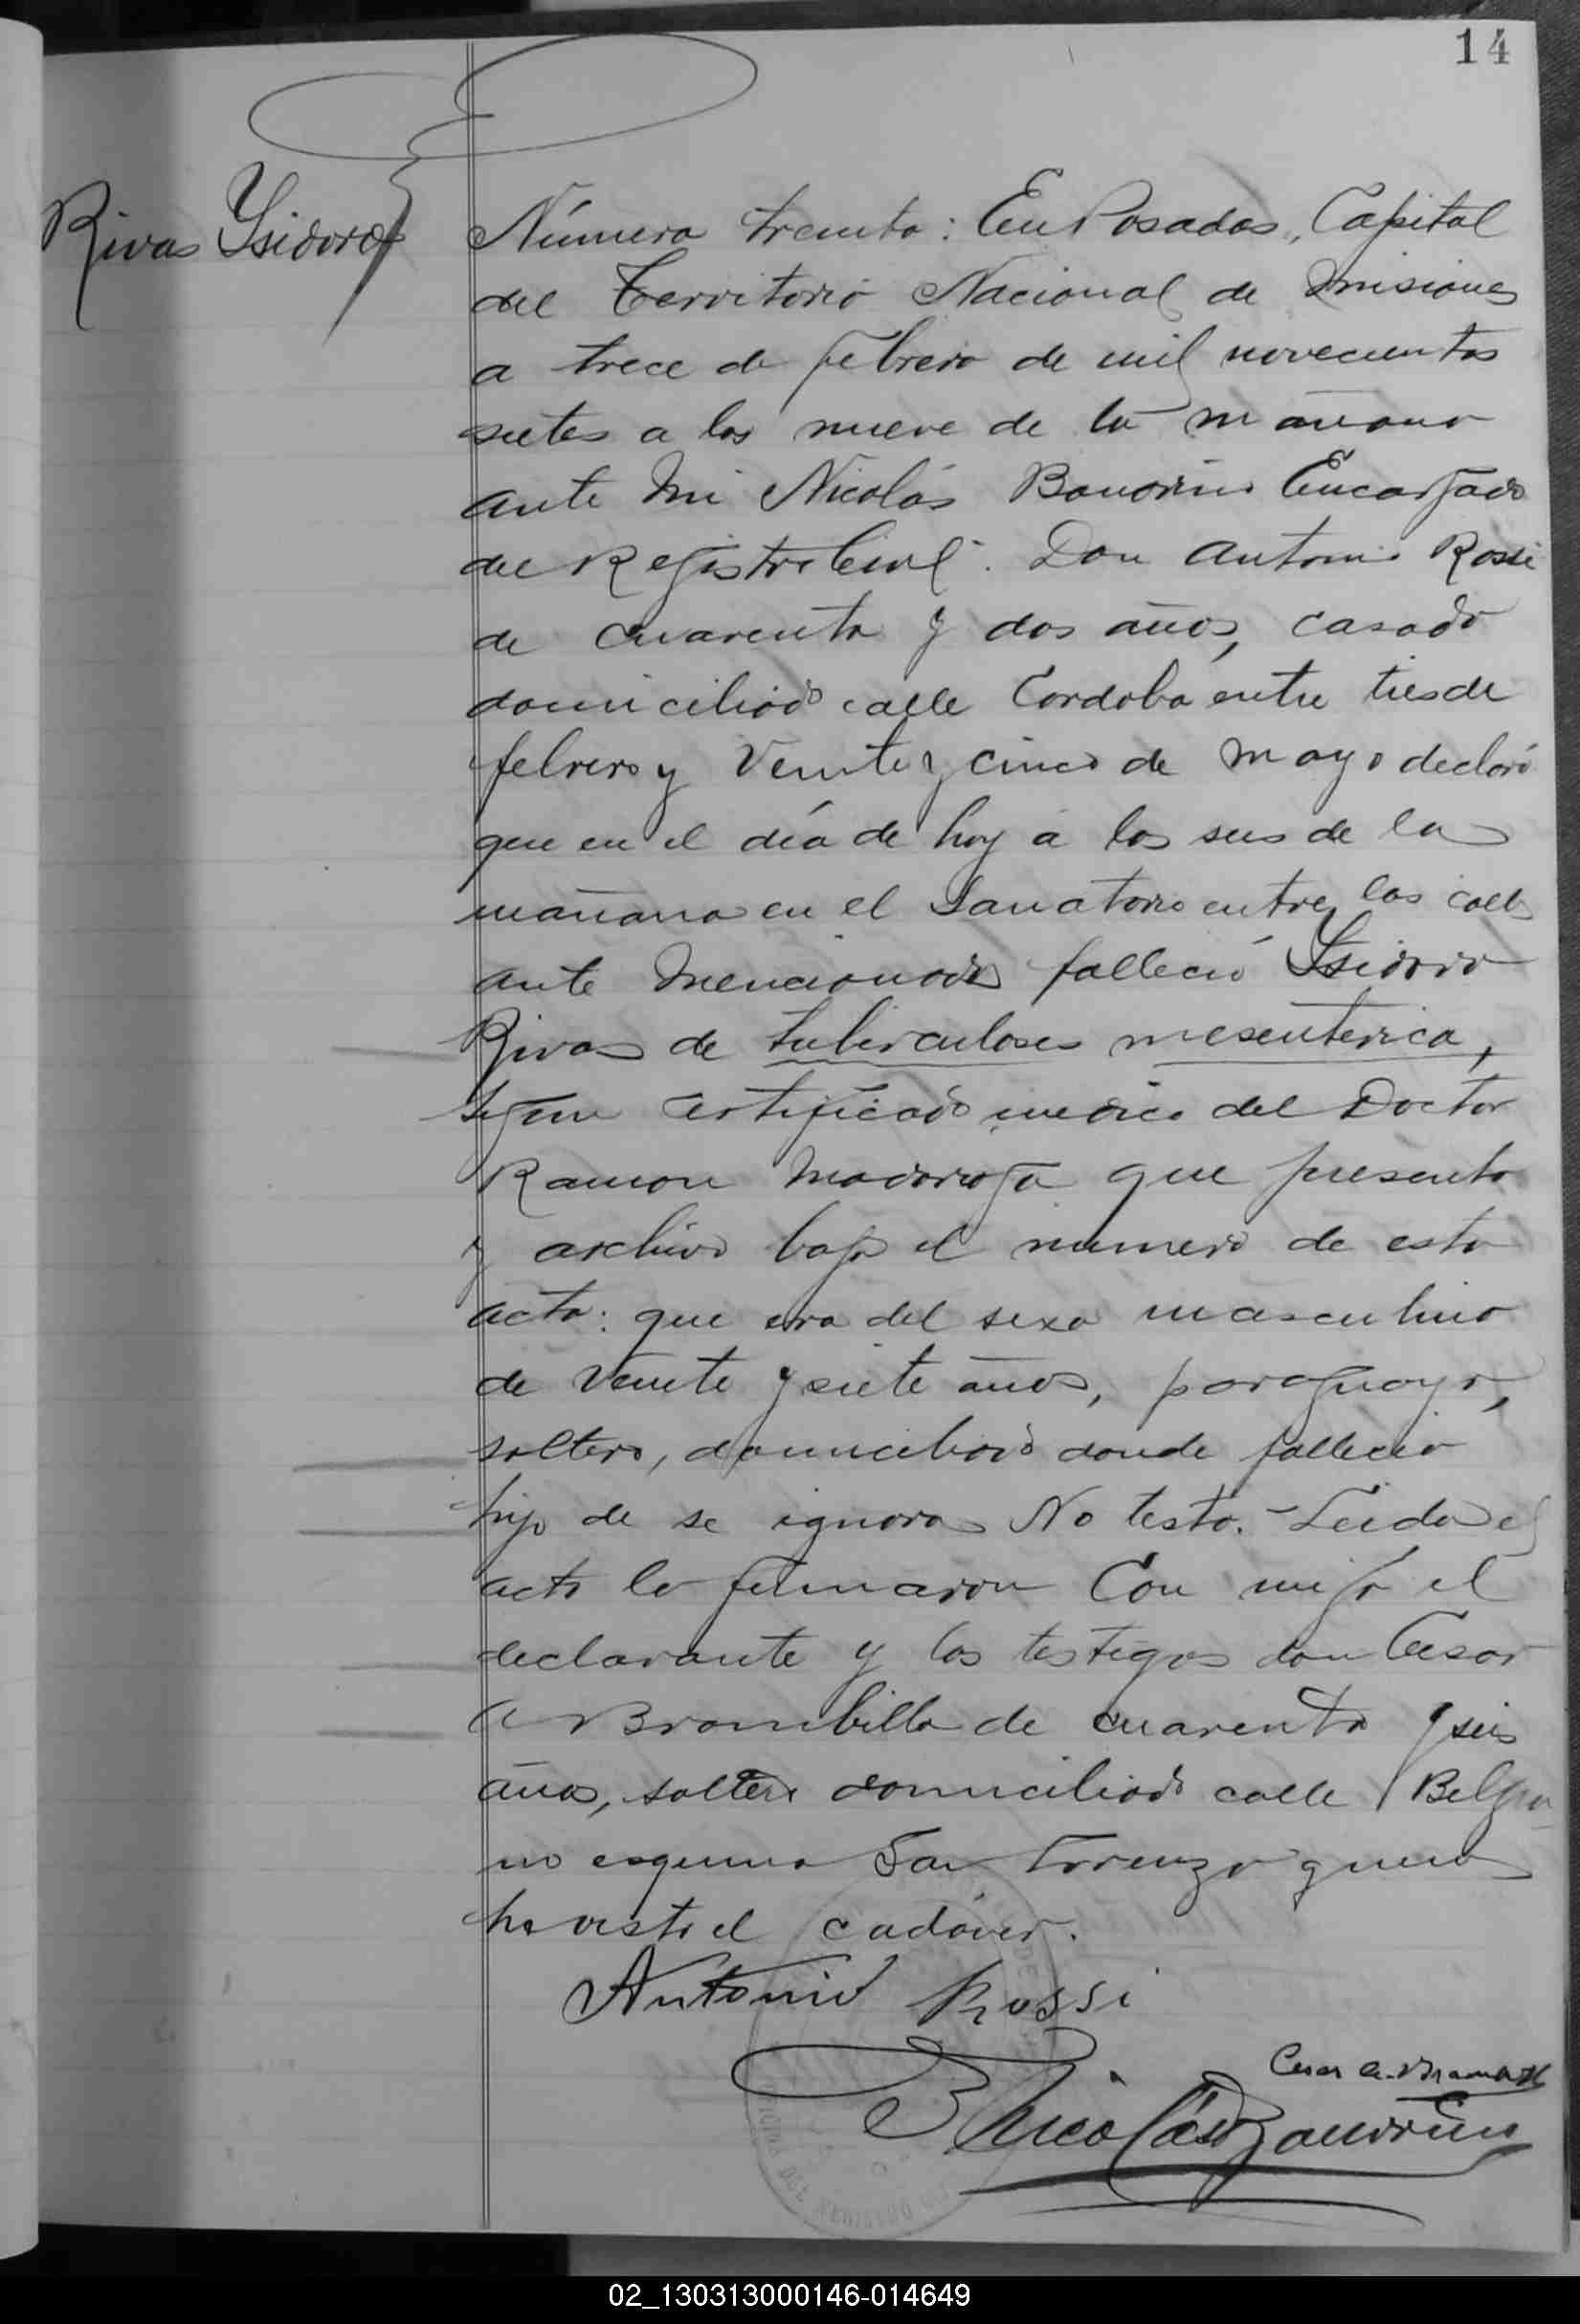 14
Rivas Ysidoro
Número treinta: En Posadas, Capital
del Territorio Nacional de Misiones
a trece de febrero de mil novecientos
siete a las nueve de la mañana
ante mi Nicolás Encargado
del Registro Civil. Don Antonio Rossi
de cuarenta y dos años, casado
domiciliado calle Cordoba entre tres de
febrero y Veinte y cinco de Mayo declaró
que en el día de hoy a las seis de la
mañana en el Sanatorio entre las calles
ante mencionadas falleció Ysidoro
Rivas de tuberculosis mesenterica,
segun certificado medico del Doctor
Ramon Madariaga que presento
y archivo bajo el numero de esta
acta: que era del sexo masculino
de veinte y siete años, paraguayo,
soltero, domiciliado donde fallecio
hijo de se ignora No testó. Leida el
acta la firmaron Con migo el
declarante y los testigos don Cesar
A Brambilla de cuarenta y seis
años, soltero domiciliado calle Belgra-
no esquina San Lorenzo quien
ha visto el cadáver.
Antonio Rossi
Cesar A. Brambilla
Nicolás
02_130313000146-014649